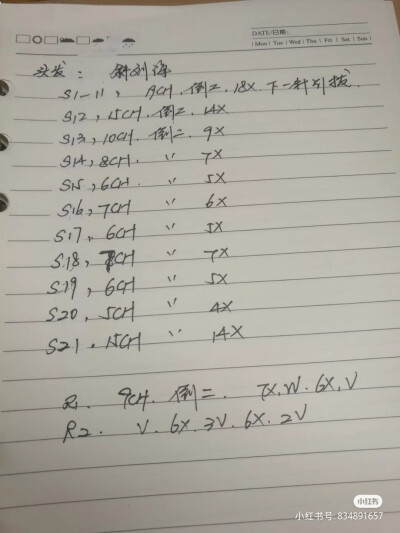 DATE/日期:
Mon Tue Wed Thu Fri Sat Sun
头发: 斜刘海
S1-11, 19CH. 倒二. 18X. 下一针引拔.
S12, 15CH. 倒二. 14X
S13, 10CH. 倒二. 9X
S14, 8CH. 〃 7X
S15, 6CH. 〃 5X
S16, 7CH 〃 6X
S17, 6CH 〃 5X
S18, 8CH 〃 7X
S19, 6CH 〃 5X
S20, 5CH 〃 4X
S21. 15CH 〃 14X
R1. 9CH. 倒二. 7X. W. 6X. V
R2. V. 6X. 3V. 6X. 2V
小红书
小红书号: 834891657